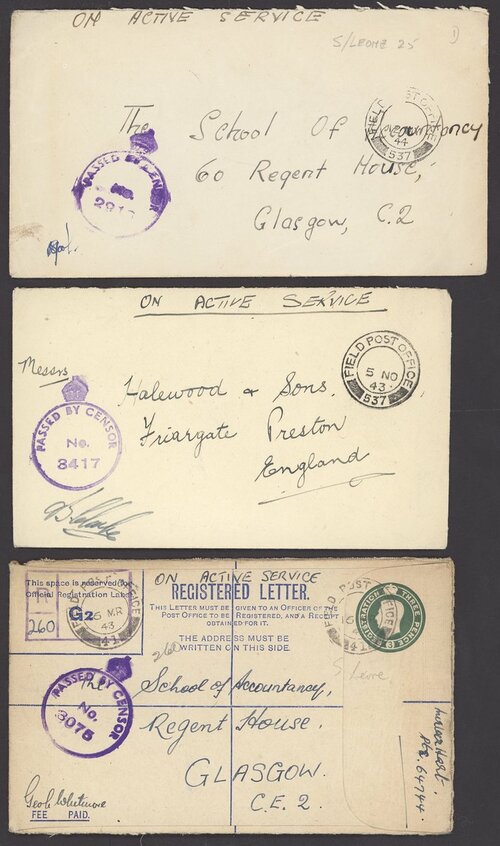 ON ACTIVE SERVICE
S/LEONE 25
1)
The School Of Accountancy
60 Regent House,
Glasgow, C.2
PASSED BY CENSOR
No.
FIELD POST OFFICE
44
537
ON ACTIVE SERVICE
Messrs
Halewood & Sons.
Friargate Preston
England
PASSED BY CENSOR
No.
3417
FIELD POST OFFICE
5 NO
43
537
ON ACTIVE SERVICE
This space is reserved for
Official Registration Label
R
G2
260
REGISTERED LETTER.
THIS LETTER MUST BE GIVEN TO AN OFFICER OF THE
POST OFFICE TO BE REGISTERED, AND A RECEIPT
OBTAINED FOR IT.
THE ADDRESS MUST BE
WRITTEN ON THIS SIDE.
260
FIELD POST OFFICE
MR
43
41
REGISTRATION THREE PENCE
The School of Accountancy,
Regent House.
GLASGOW.
C.E.2.
PASSED BY CENSOR
No.
3075
Geoh Whitmore
FEE PAID.